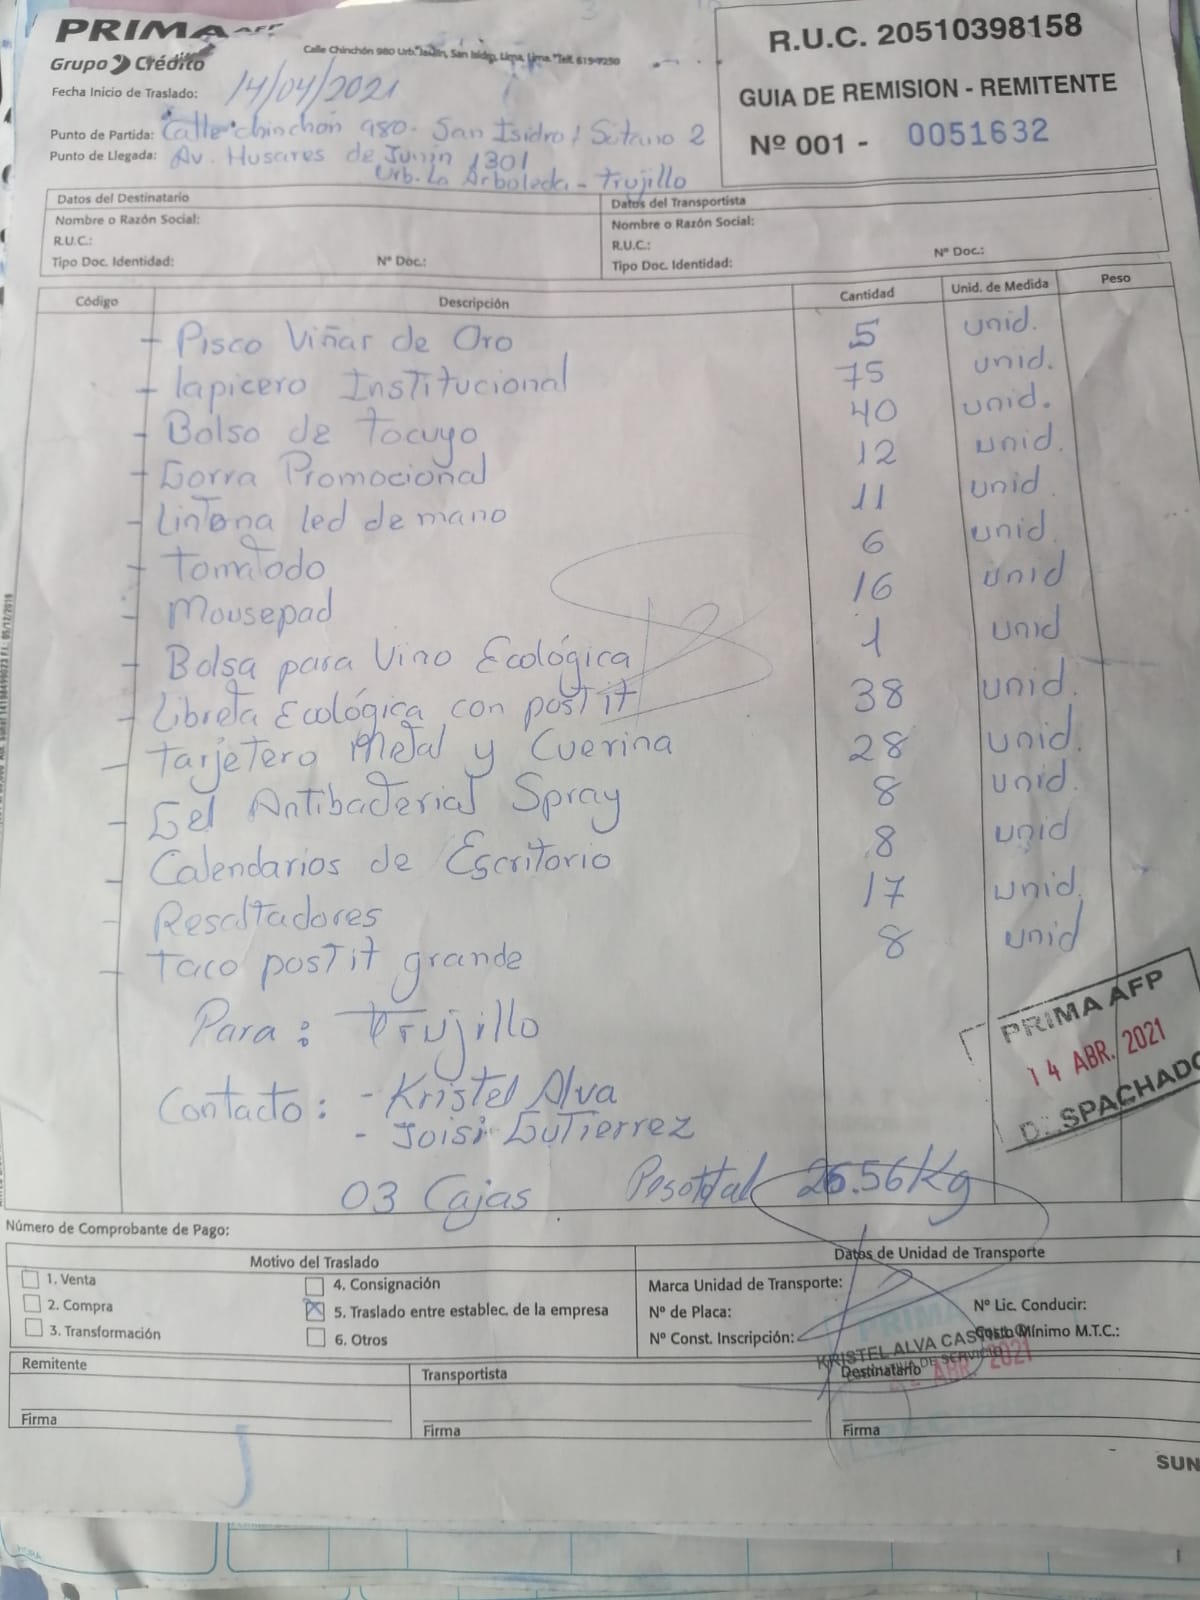 PRIMA AFP
Grupo Crédito
Calle Chinchón 980 Urb. Jardín, San Isidro, Lima, Lima. Telf. 615-7250
R.U.C. 20510398158
GUIA DE REMISION - REMITENTE
Nº 001 - 0051632
Fecha Inicio de Traslado: 14/04/2021
Punto de Partida: Calle chinchón 980. San Isidro / Sótano 2
Punto de Llegada: Av. Husares de Junín 1301
Urb. La Arboleda - Trujillo
Datos del Destinatario
Nombre o Razón Social:
R.U.C.:
Tipo Doc. Identidad: Nº Doc.:
Datos del Transportista
Nombre o Razón Social:
R.U.C.:
Tipo Doc. Identidad: Nº Doc.:
Código Descripción Cantidad Unid. de Medida Peso
- Pisco Viñar de Oro 5 unid.
- lapicero Institucional 75 unid.
- Bolso de Tocuyo 40 unid.
- Gorra Promocional 12 unid.
- Linterna led de mano 11 unid
- Tomatodo 6 unid.
- Mousepad 16 unid
- Bolsa para Vino Ecológica 1 unid
- Libreta Ecológica con postit 38 unid.
- Tarjetero Metal y Cuerina 28 unid.
- Gel Antibacterial Spray 8 unid.
- Calendarios de Escritorio 8 unid
- Resaltadores 17 unid.
- Taco postit grande 8 unid
Para: Trujillo
Contacto: - Kristel Alva
- Joisi Gutierrez
03 Cajas Peso total 26.56 Kg
PRIMA AFP
14 ABR. 2021
DESPACHADO
Número de Comprobante de Pago:
Motivo del Traslado
1. Venta
2. Compra
3. Transformación
4. Consignación
5. Traslado entre establec. de la empresa
6. Otros
Datos de Unidad de Transporte
Marca Unidad de Transporte:
Nº de Placa: Nº Lic. Conducir:
Nº Const. Inscripción: Costo Mínimo M.T.C.:
PRIMA
KRISTEL ALVA CASTILLO
ABR 2021
RECIBIDO
Remitente
Firma
Transportista
Firma
Destinatario
Firma
SUN